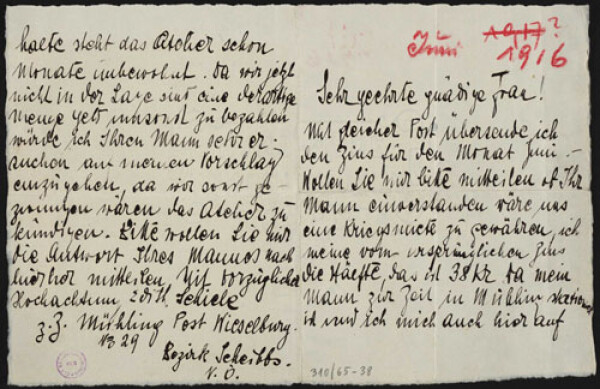 Juni 1917?
1916
Sehr geehrte gnädige Frau!
Mit gleicher Post übersende ich
den Zins für den Monat Juni.-
Wollen Sie mir bitte mitteilen ob Ihr
Mann einverstanden wäre uns
eine Kriegsmiete zu gewähren, ich
meine vom ursprünglichen Zins
die Hälfte, das ist 38 Kr. da mein
Mann zur Zeit in Mühling stationiert
ist und ich mich auch hier auf
halte steht das Atelier schon
Monate unbewohnt. Da wir jetzt
nicht in der Lage sind eine derartige
Menge Geld umsonst zu bezahlen
würde ich Ihren Mann sehr er-
suchen auf meinen Vorschlag
einzugehen, da wir sonst ge-
zwungen wären das Atelier zu
kündigen. Bitte wollen Sie mir
die Antwort Ihres Mannes nach
hierher mitteilen. Mit vorzüglicher
Hochachtung Edith Schiele
z. Z. Mühling Post Wieselburg.
No 29
Bezirk Scheibbs.
N. Ö.
310/65-38